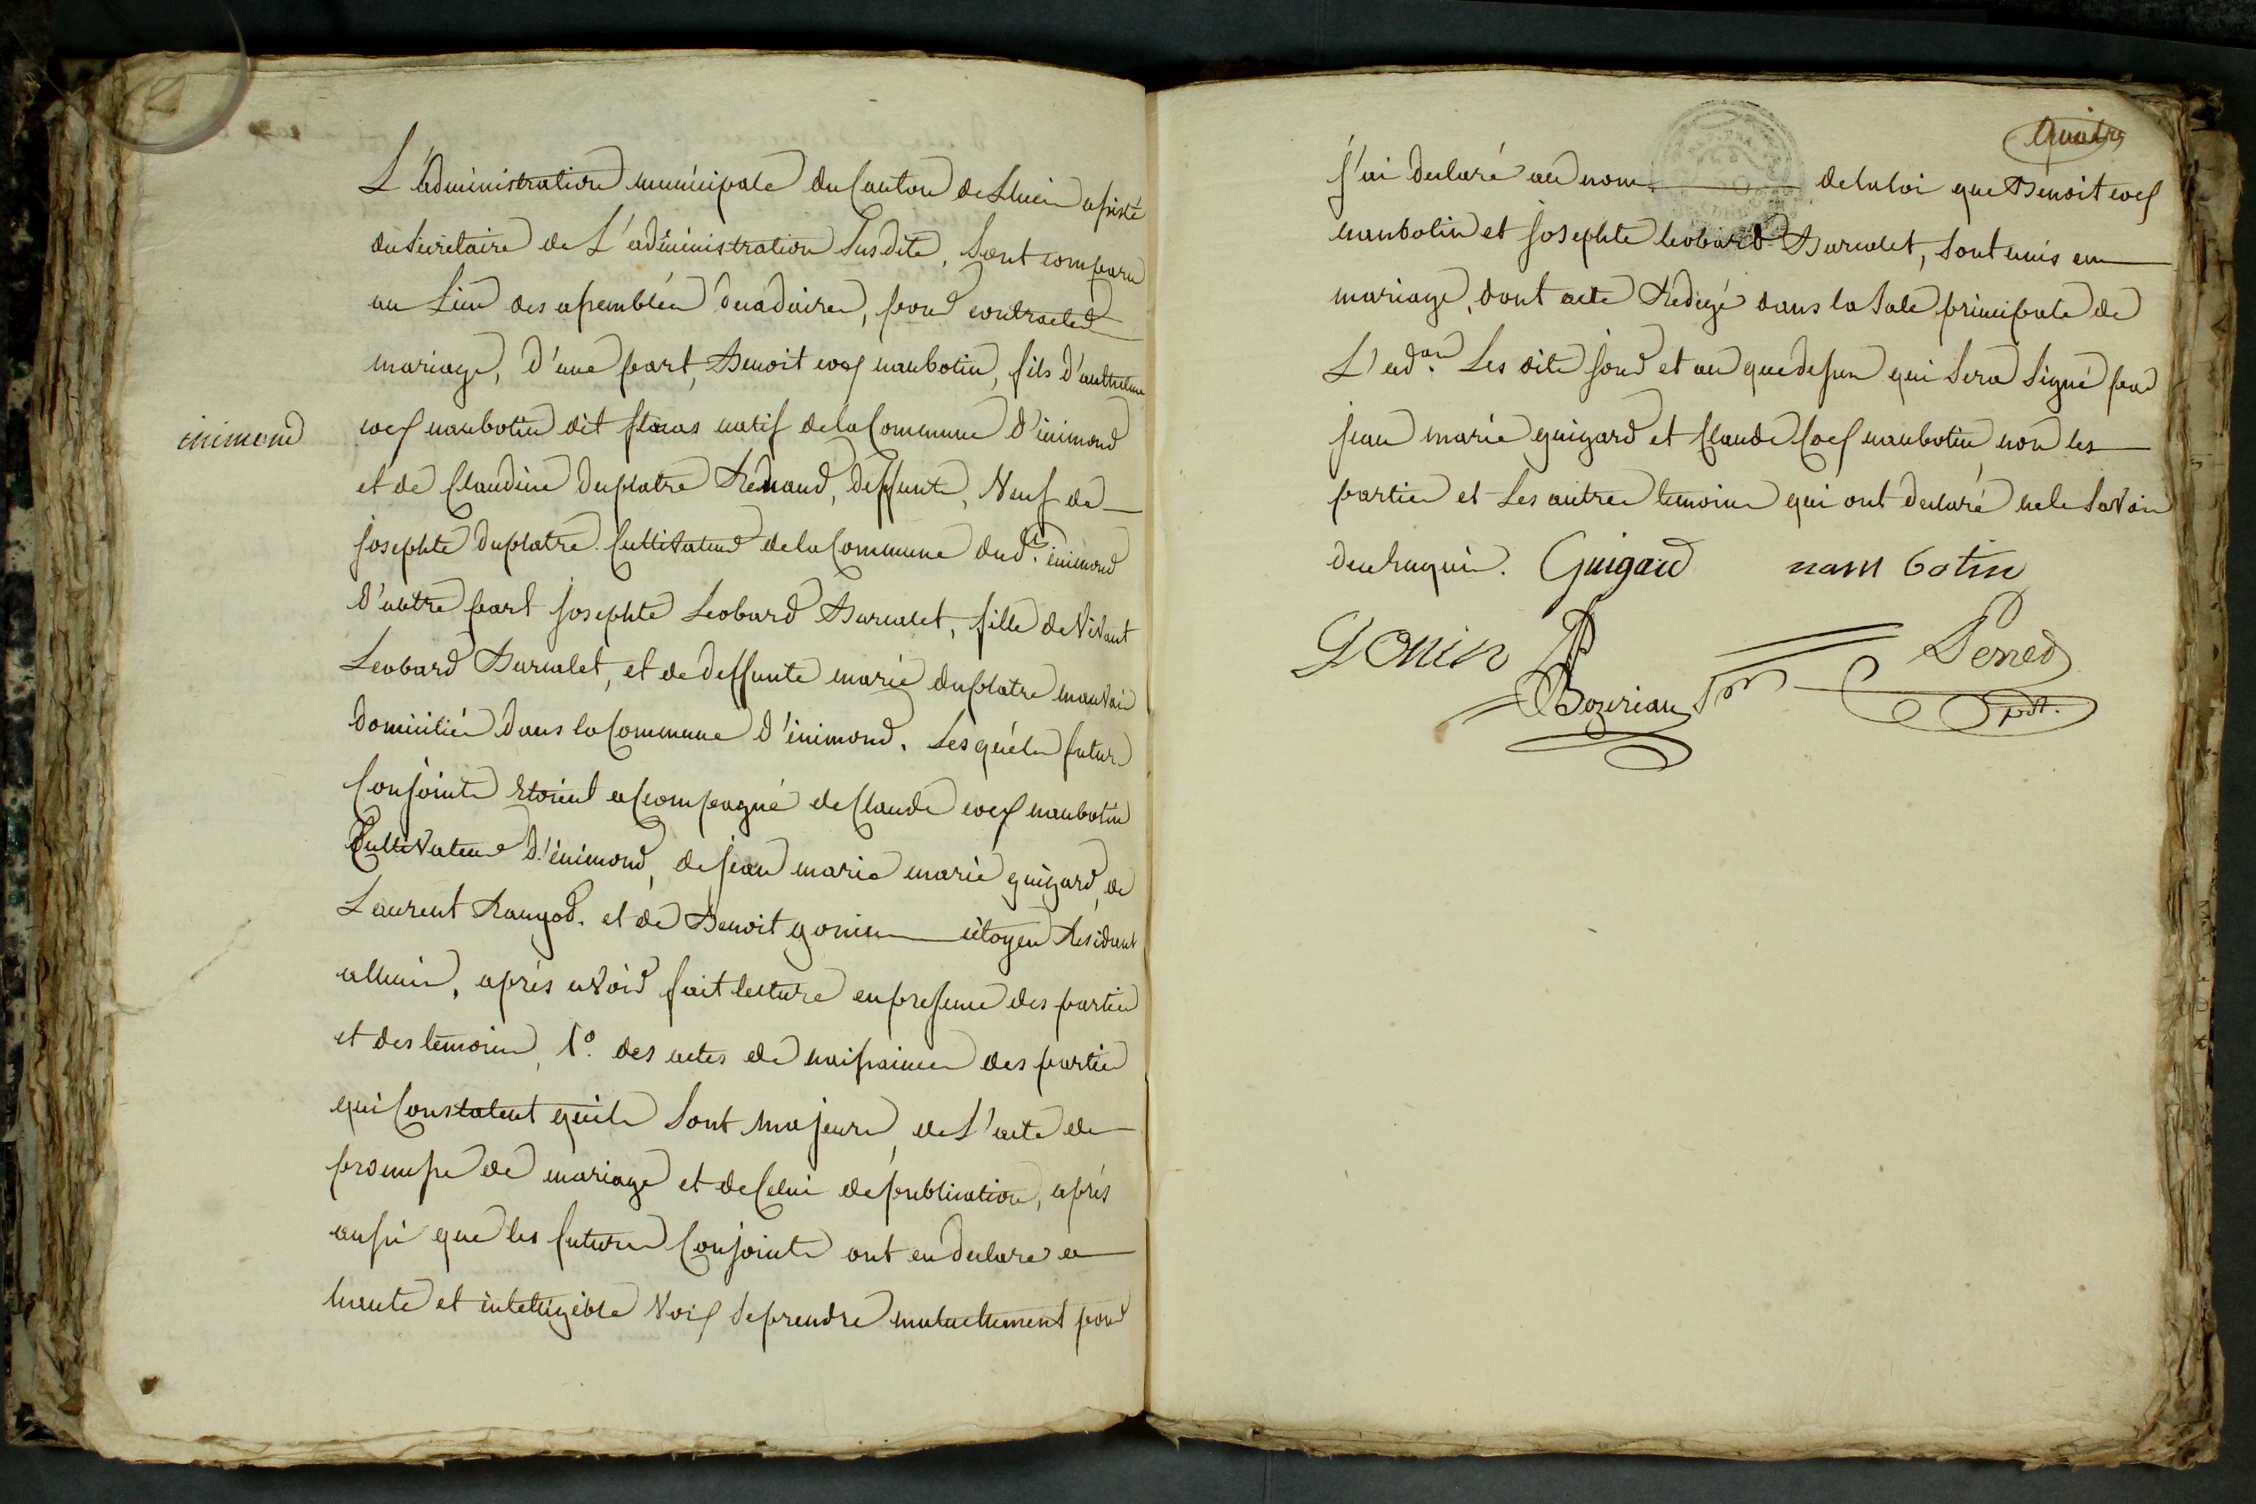 L'administration municipale du Canton de Lhuin assisté
du secretaire de L'administration Susdite, Sont comparu
au Lieu des assemblées decadaires, pour contracter
mariage, d'une part, Benoit coef nanbotin, fils d'anthelme
coef nanbotin dit natif de la Commune d'inimond
inimond
et de Claudine duplatre Renaud, deffunte, Veuf de
Josephte duplatre Cultivateur de la Commune dud.t inimond
d'autre part Josephte Leobard Burcalet, fille de Vivant
Leobard Burcalet, et de deffunte marie duplatre
domiciliés dans la Commune d'inimond. Lesquels futurs
Conjoints Etoient acompagné de Claude coef nanbotin
Cultivateur d'inimond, de jean marie marie guigard, de
Laurent et de Benoit gonin citoyen Résidant
a Lhuin, après avoir fait lecture en presence des parties
et des temoins, 1.° des actes de naissances des parties
qui Constatent quils Sont majeurs, de L'acte de
promesse de mariage et de Celui de publication, après
aussi que les futures Conjoints ont eu declare a
haute et intelligible Voix se prendre mutuellement pour
quatre
j'ai declaré au nom de la loi que Benoit coef
nanbotin et josephte leobard Burcalet, sont unis en
mariage, dont acte Redigé dans la Sale principale de
L'ad.on Les dits jour et an que dessus qui sera signé par
jean marie guigard et Claude Coef nanbotin non les
parties et Les autres temoins qui ont declaré ne le savoir
de ce requis. Guigard nam botin
Gonin
Bozerian Perret
pdt.